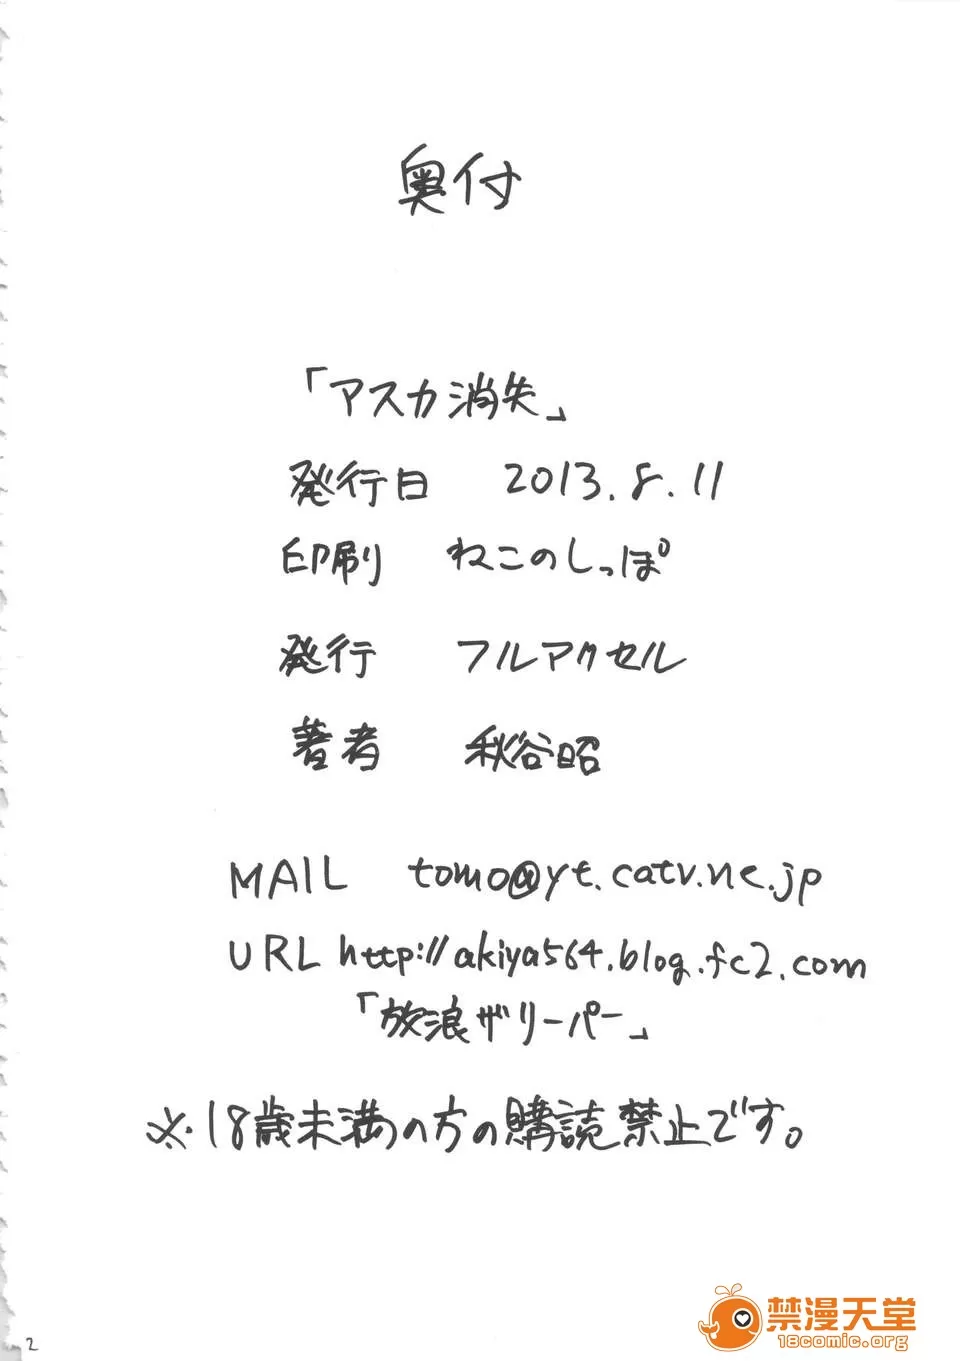 奥付
「アスカ消失」
発行日 2013.8.11
印刷 ねこのしっぽ
発行 フルアクセル
著者 秋谷昭
MAIL tomo@yt.catv.ne.jp
URL http://akiya564.blog.fc2.com
「放浪ザリーパー」
※18歳未満の方の購読禁止です。
2
禁漫天堂
18comic.org